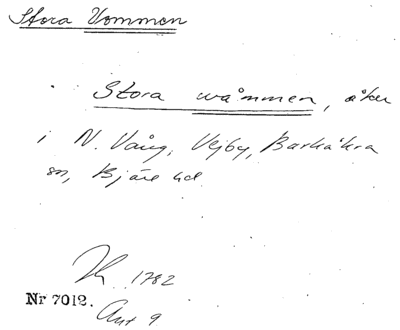 Stora Vommen
Stora wåmmen, åker
i N. Vång, Vejby, Barkåkra
sn, Bjäre hd
1782
Nr 7012.
Akt 9